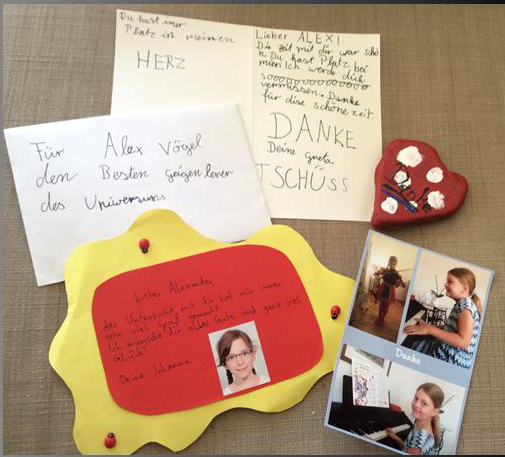 Du hast imer
Platz in meinen
HERZ
Lieber ALEX!
Die Zeit mit dir war schö
n. Du hast Platz bei
mir. Ich werde dich
soooooooooooooo
vermissen. Danke
für dise schöne zeit
DANKE
Deine Greta
TSCHÜSS
Für Alex Vögel
den Besten geigenlerer
des Uniwersums
Danke
Lieber Alexander
der Unterricht mit dir hat mir immer
sehr viel Spaß gemacht.
Ich wünsche dir alles Gute und ganz viel
Glück!
Deine Johanna
Danke